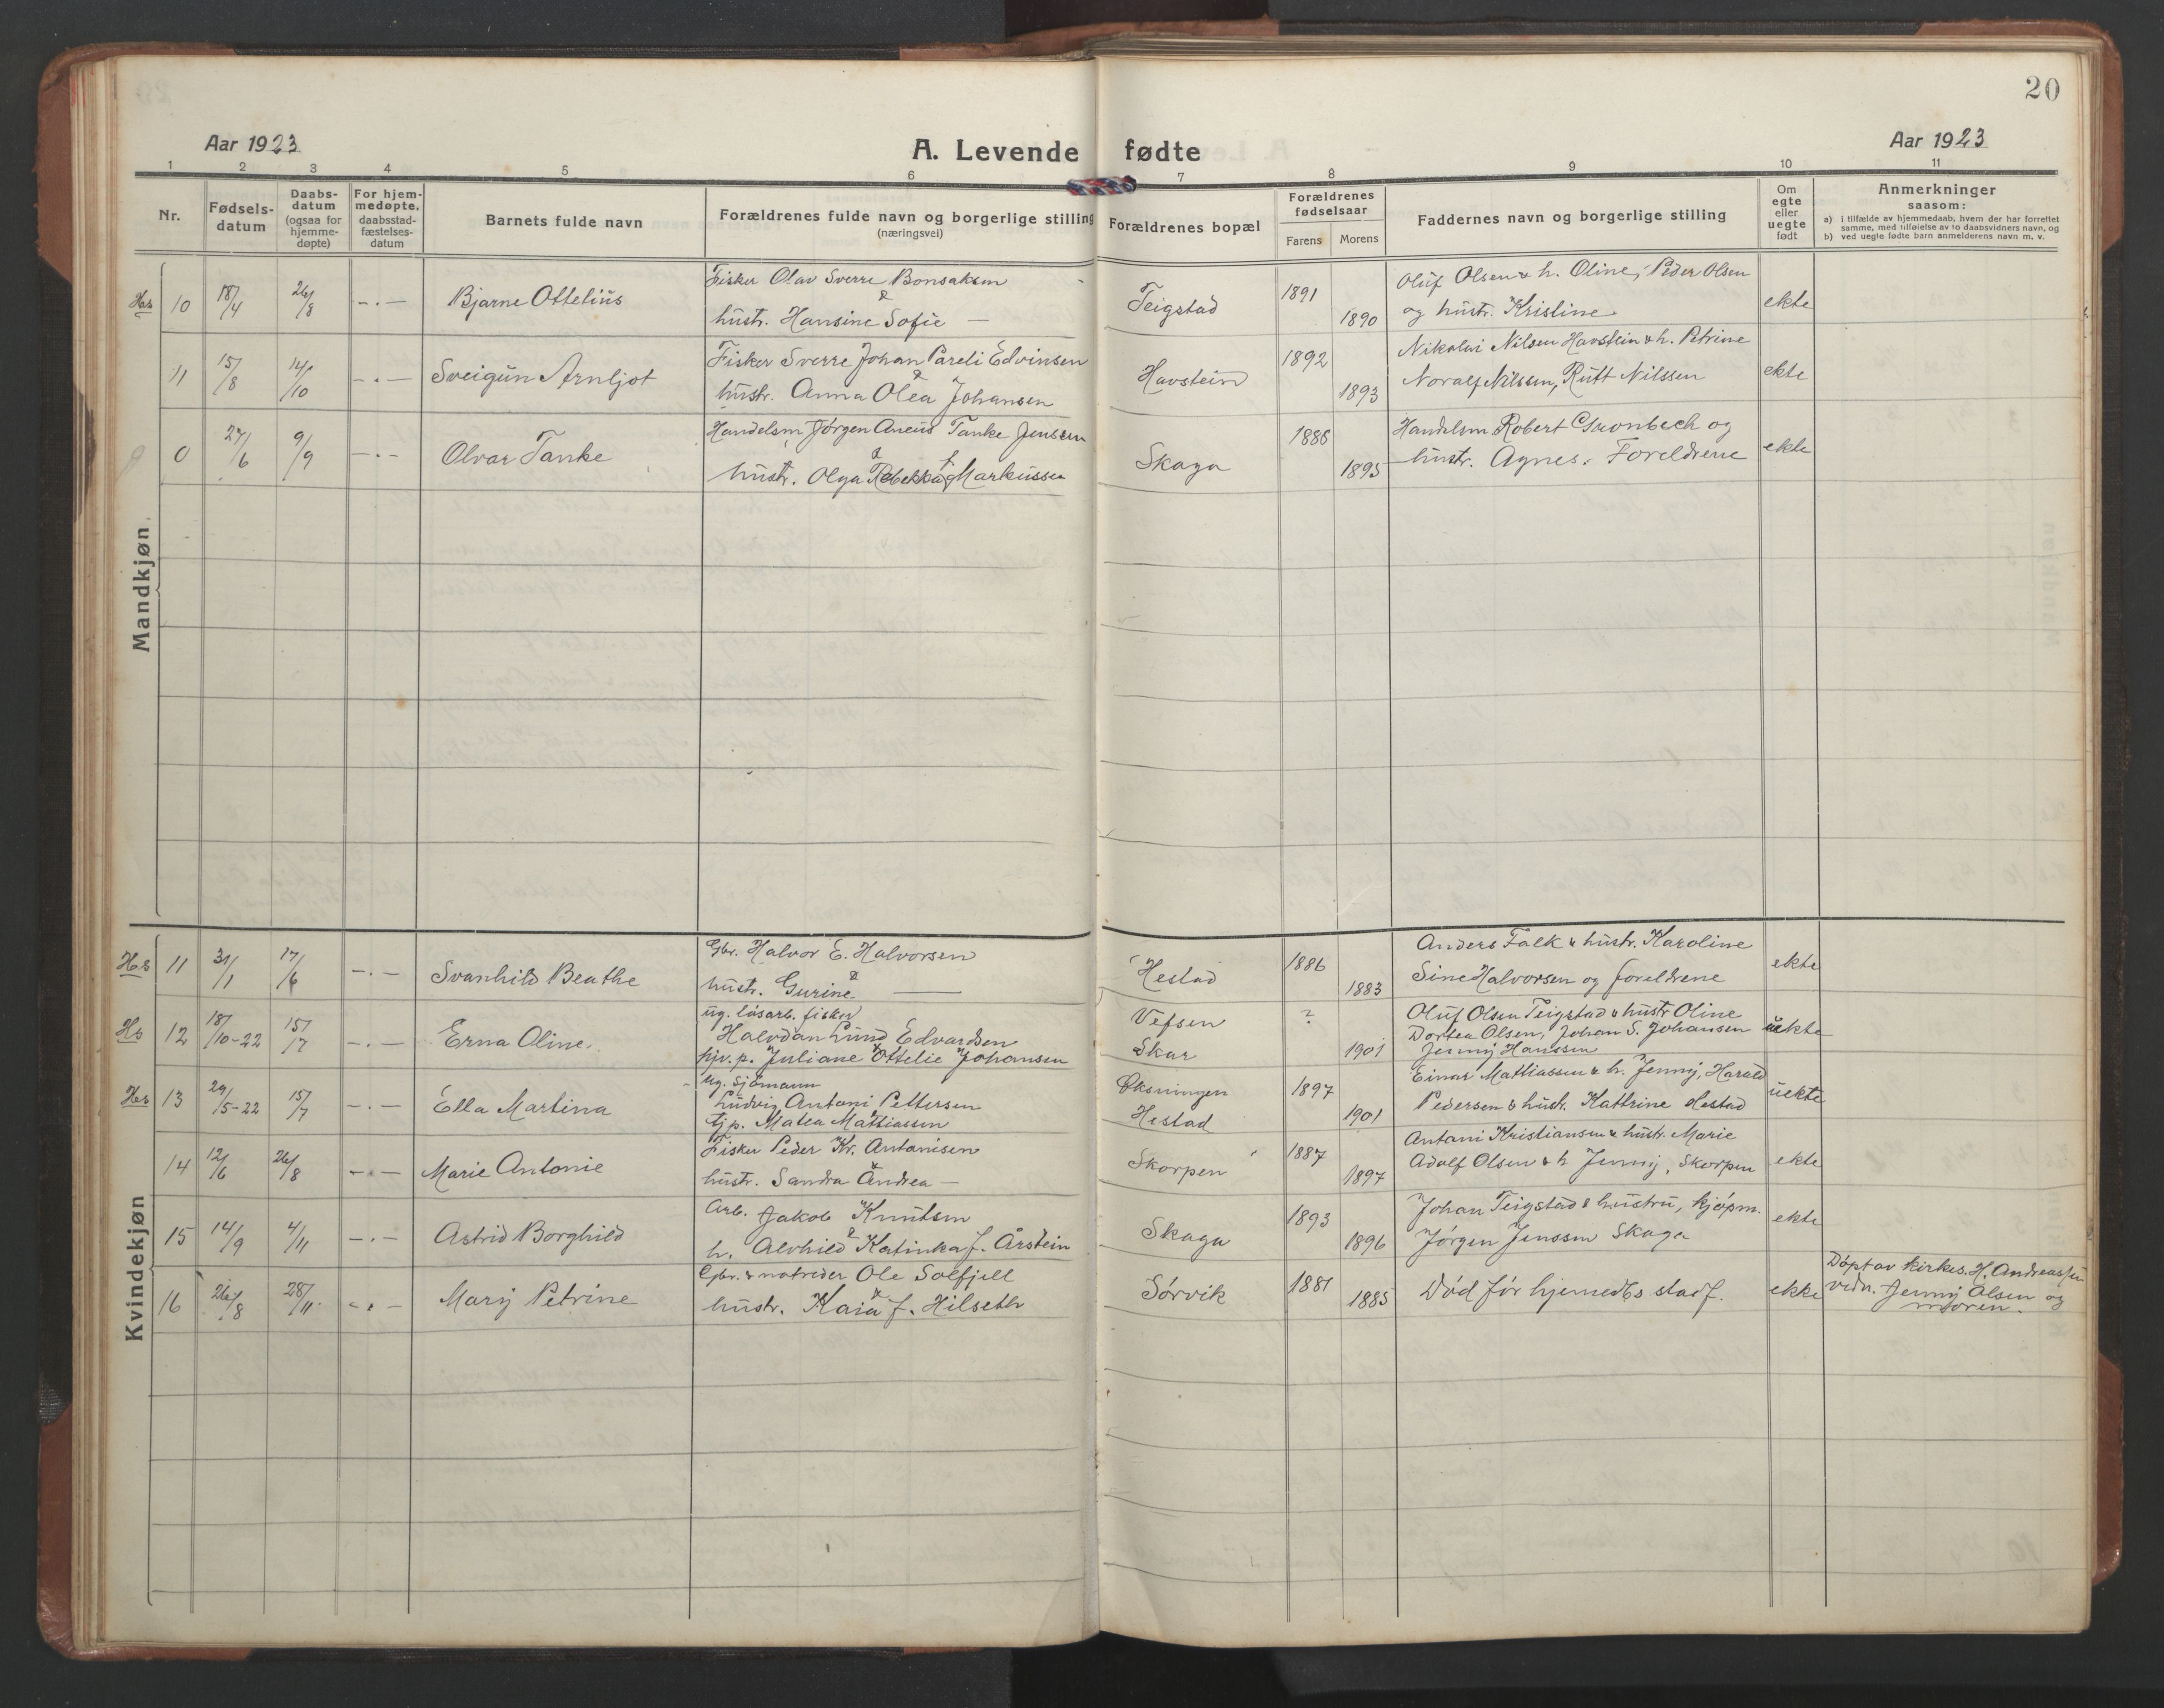 20
Aar 1923
A. Levende fødte
Aar 1923
1 2 3 4 5 6 7 8 9 10 11
Nr.
Fødsels-
datum
Daabs-
datum
(ogsaa for
hjemme-
døpte)
For hjem-
medøpte,
daabsstad-
fæstelses-
datum
Barnets fulde navn
Forældrenes fulde navn og borgerlige stilling
(næringsvei)
Forældrenes bopæl
Forældrenes
fødselsaar
Farens Morens
Faddernes navn og borgerlige stilling
Om
egte
eller
uegte
født
Anmerkninger
saasom:
a) i tilfælde av hjemmedaab, hvem der har forrettet
samme, med tilføielse av to daabsvidners navn, og
b) ved uegte fødte barn anmelderens navn m. v.
Mandkjøn
Hs 10 18/4 26/8 -.- Bjarne Ottelius
Fisker Olav Sverre Bonsaksen
&
hustr. Hansine Sofie —
Teigstad 1891 1890
Oluf Olsen & h. Oline, Peder Olsen
og hustr. Kristine
ekte
11 15/8 14/10 -.- Sveigun Arnljot
Fisker Sverre Johan Pareli Edvinsen
&
hustr. Anna Olea Johansen
Havstein 1892 1893
Nikolai Nilsen Havstein & h. Petrine
Noralf Nilssen, Rutt Nilssen
ekte
0 27/6 9/9 -.- Olvar Tanke
Handelsm. Jørgen Aneus Tanke Jenssen
&
hustr. Olga Rebekka f. Markussen
Skaga 1886 1895
Handelsm Robert Grønbech og
hustr. Agnes. Foreldrene
ekte
Kvindekjøn
Hs 11 31/1 17/6 -.- Svanhild Beathe
Gbr. Halvor E. Halvorsen
&
hustr. Gurine —
Hestad 1886 1883
Anders Falk & hustr. Karoline
Sine Halvorsen og foreldrene
ekte
Hs 12 18/10-22 15/7 -.- Erna Oline
ug. løsarb. fisker
Halvdan Lund Edvardsen
&
pjv. p. Juliane Ottelie Johansen
Vefsen
Skar
? 1901
Oluf Olsen Teigstad & hustr Oline
Dortea Olsen, Johan S. Johansen
Jenny Hanssen
uekte
Hs 13 29/5-22 15/7 -.- Ella Martina
ug. Sjømann
Ludvig Antoni Pettersen
&
tj. p. Matea Mattiassen
Øksningen
Hestad
1897 1901
Einar Mattiassen & h. Jenny, Harald
Pedersen & hustr. Kattrine Hestad
uekte
14 12/6 26/8 -.- Marie Antonie
Fisker Peder Kr. Antonisen
&
hustr. Sandra Andrea —
Skorpen 1887 1897
Antoni Kristiansen & hustr. Marie
Adolf Olsen & h Jenny, Skorpen
ekte
15 14/9 4/11 -.- Astrid Borghild
Arb. Jakob Knutsen
&
h. Alvhild Katinka f. Årstein
Skaga 1893 1896
Johan Teigstad & hustru, kjøpm.
Jørgen Jenssen Skaga
ekte
16 26/8 28/11 -.- Mary Petrine
Gbr. & notreder Ole Solfjell
&
hustr. Kaia f. Hilseth
Sørvik 1881 1885
Død før hjemedbs stadf.
ekte
Døpt av kirkes. H. Andreassen
vidn. Jenny Olsen og
moren.